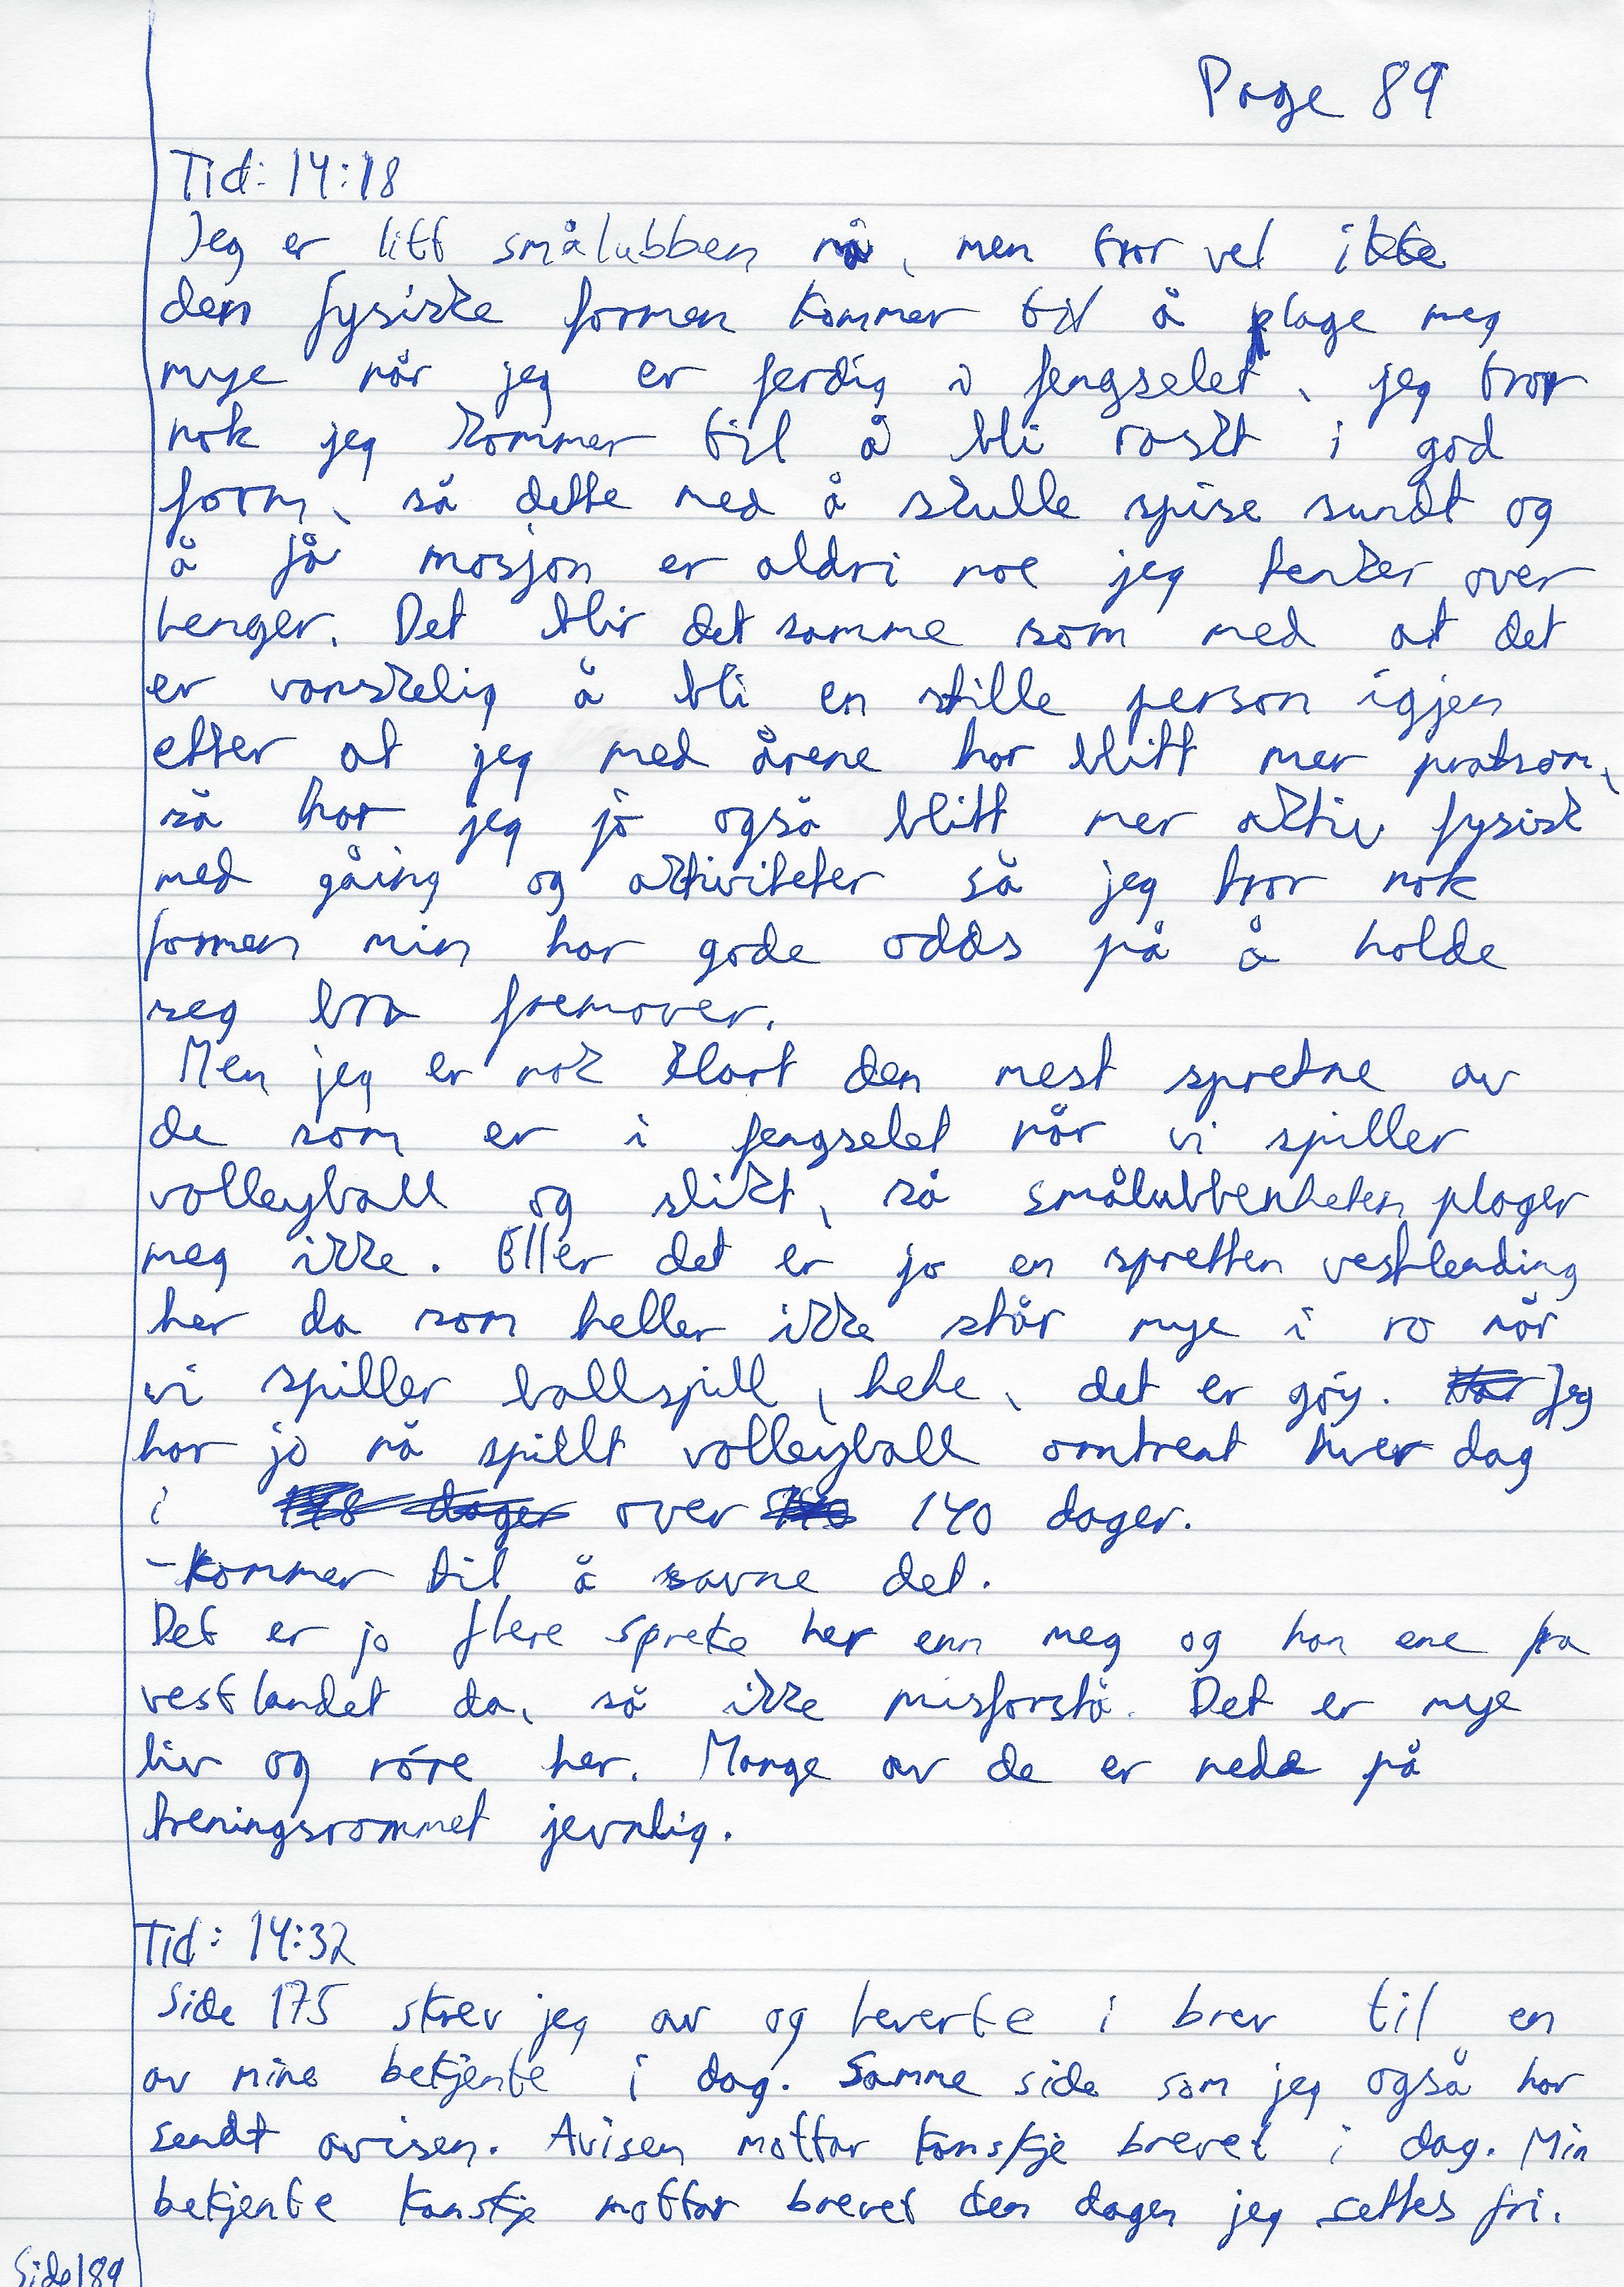 Page 89
Tid: 14:18
Jeg er litt smålubben nå, men tror vel ikke
den fysiske formen kommer til å plage meg
mye når jeg er ferdig i fengselet, jeg tror
nok jeg kommer til å bli raskt i god
form, så dette med å skulle spise sundt og
å få mosjon er aldri noe jeg tenker over
lenger. Det blir det samme som med at det
er vanskelig å bli en stille person igjen
etter at jeg med årene har blitt mer pratsom,
så har jeg jo også blitt mer aktiv fysisk
med gåing og aktiviteter så jeg tror nok
formen min har gode odds på å holde
seg bra fremover.
Men jeg er nok klart den mest spretne av
de som er i fengselet når vi spiller
volleyball og slikt, så smålubbenheten plager
meg ikke. Eller det er jo en spretten vestlending
her da som heller ikke står mye i ro når
vi spiller ballspill, hehe, det er gøy. Jeg
har jo nå spillt volleyball omtrent hver dag
i over 140 dager.
- Kommer til å savne det.
Det er jo flere spreke her enn meg og han ene fra
vestlandet da, så ikke misforstå. Det er mye
liv og røre her. Mange av de er nede på
treningsrommet jevnlig.
Tid: 14:32
Side 175 skrev jeg av og leverte i brev til en
av mine bekjente i dag. Samme side som jeg også har
sendt avisen. Avisen mottar kanskje brevet i dag. Min
bekjente kanskje mottar brevet den dagen jeg settes fri.
Side 189